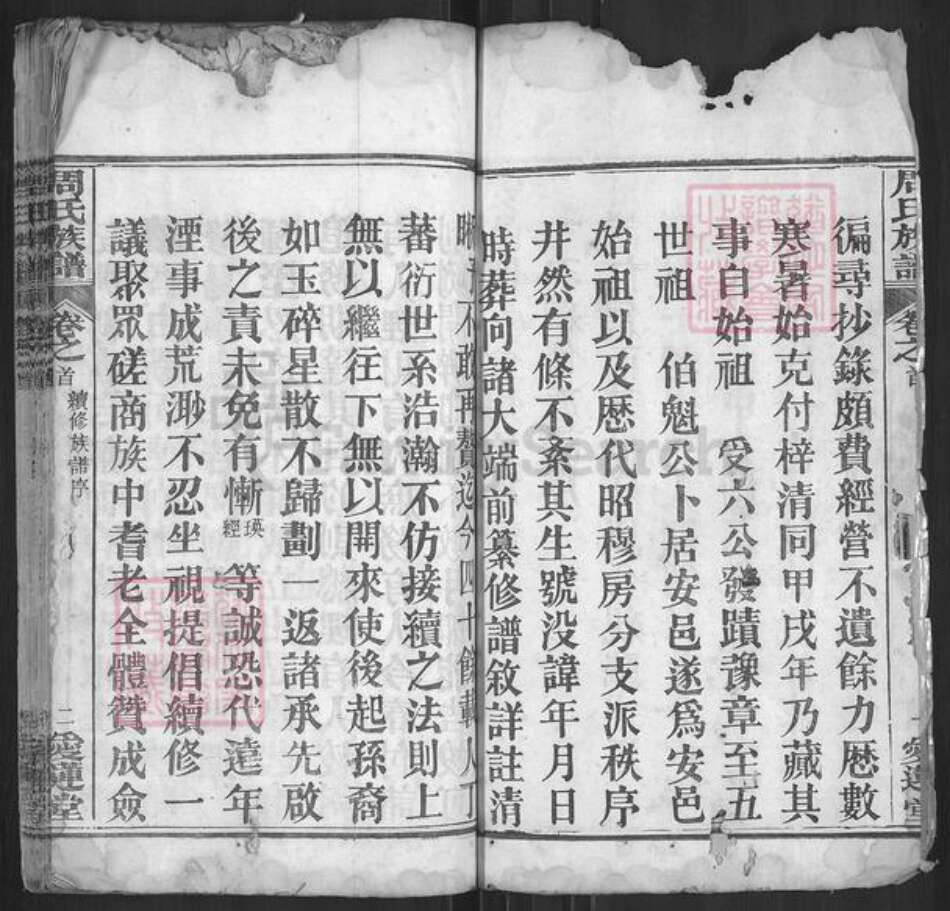 周氏族譜 卷之首
徧尋抄錄頗費經營不遺餘力歷數
寒暑始克付梓清同甲戌年乃藏其
事自始祖 受六公發蹟豫章至五
世祖 伯魁公卜居安邑遂爲安邑
始祖以及歷代昭穆房分支派秩序
井然有條不紊其生號没諱年月日
時葬向諸大端前纂修譜敘詳註清
晰予不敢再贅迄今四十餘載人丁
蕃衍世系浩瀚不仿接續之法則上
無以繼往下無以開來使後起孫裔
如玉碎星散不歸劃一返諸承先啟
後之責未免有慚瑛經等誠恐代遠年
湮事成荒渺不忍坐視提倡續修一
議聚眾磋商族中耆老全體贊成僉
周氏族譜 卷之首 續修族譜序 二 愛蓮堂